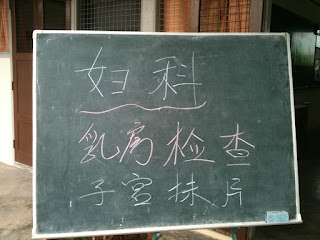 妇科
乳房检查
子宫抹片